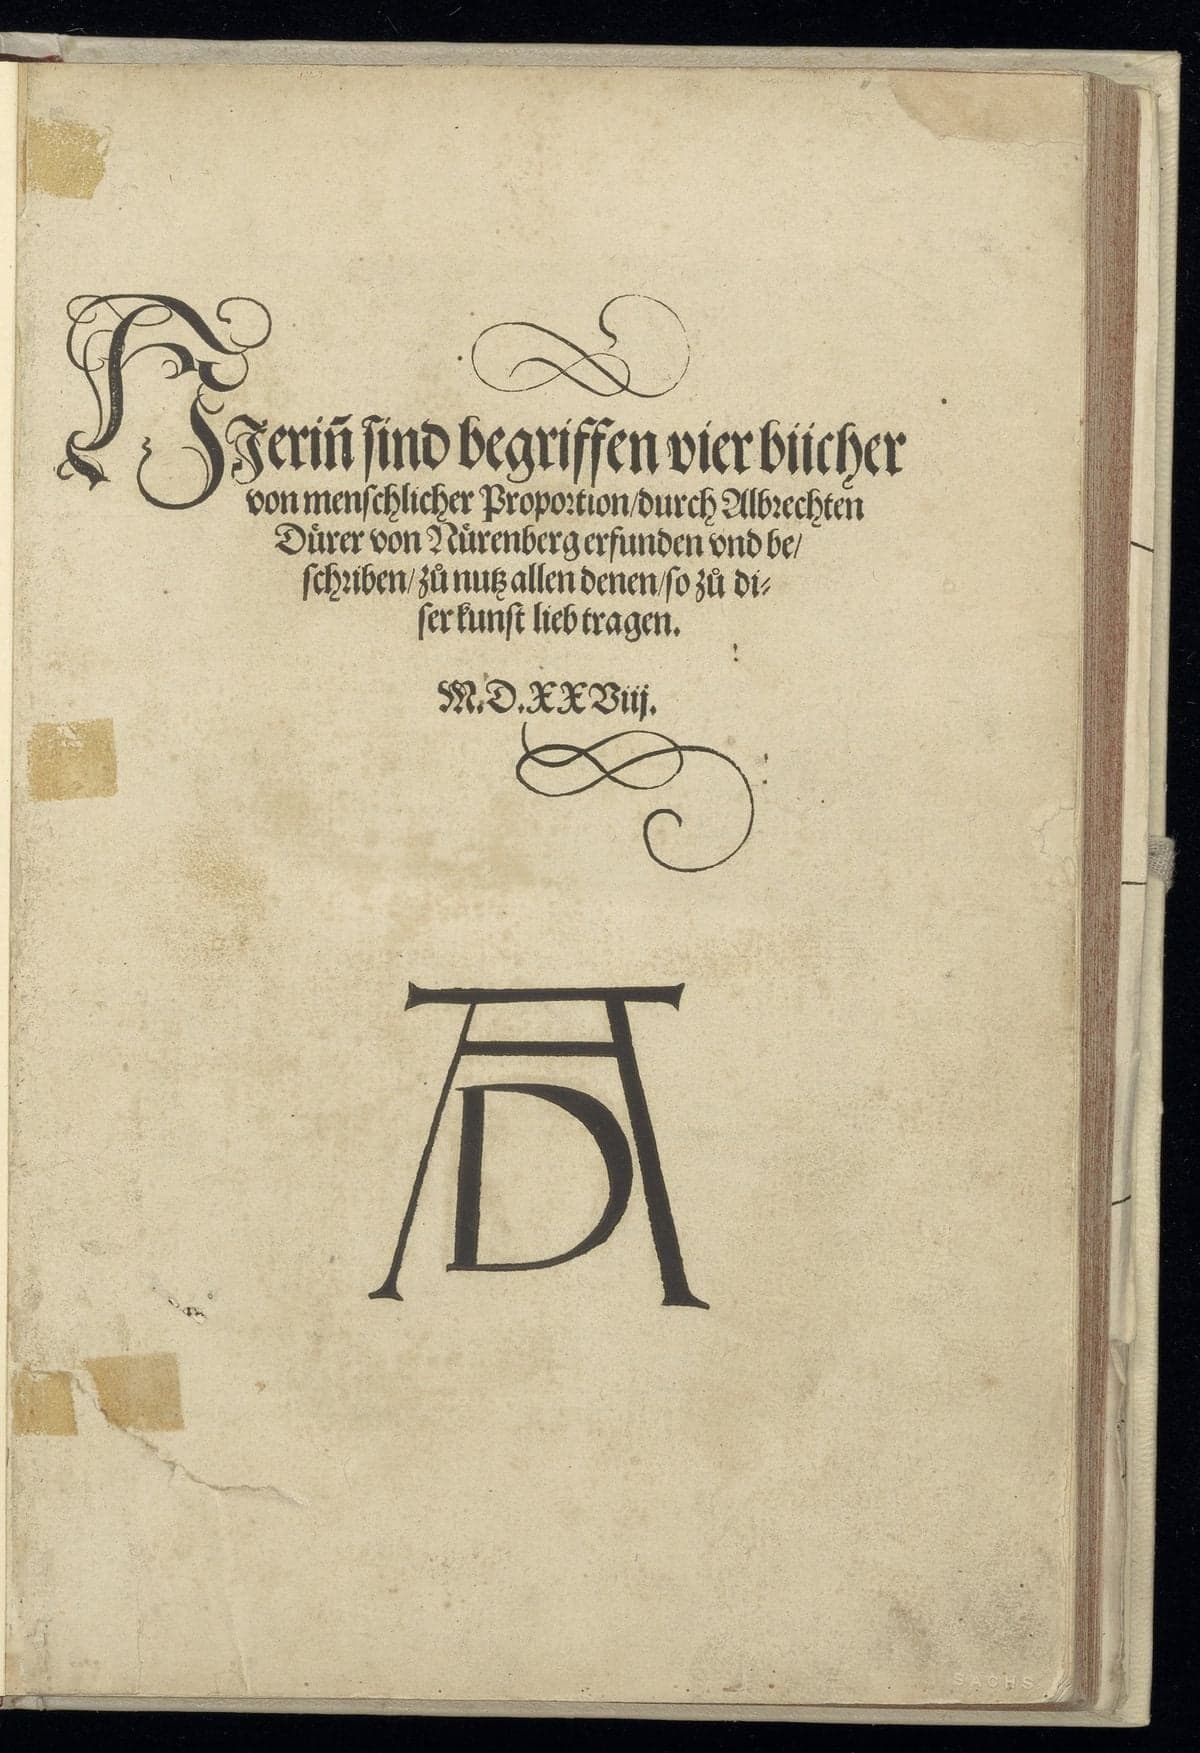 HJerin̄ sind begriffen vier bücher
von menschlicher Proportion/durch Albrechten
Dürer von Nürenberg erfunden vnd be/
schriben/zů nutz allen denen/so zů di-
ser kunst lieb tragen.
M.D.XXViij.
AD
SACHS